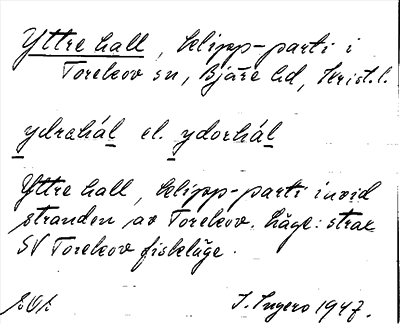 Yttre hall, klipp-parti i
Torekov sn, Bjäre hd, Krist. l.
ydrahál el. ydorhál
Yttre hall, klipp-parti invid
stranden av Torekov. Läge: strax
SV Torekov fiskläge.
J. Ingers 1947.